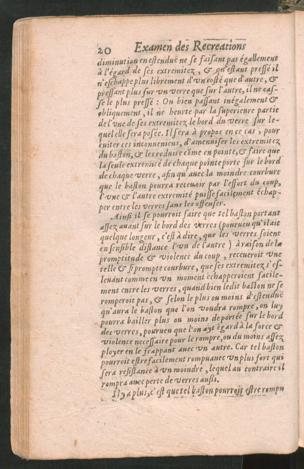 20 Examen des Recreations
diminution en estenduë ne se faisant pas égallement
à l'égard de ses extremitez, & qu'estant pressé il
n'eschappe plus librement d'vn costé que d'autre, &
pressant plus sur vn verre que sur l'autre, il ne cas-
se le plus pressé: Ou bien passant inégalement &
obliquement, il ne heurte par la superieure partie
de l'vne de ses extremitez le bord du verre sur le-
quel elle sera posée. Il sera à propos en ce cas, pour
éuiter ces inconueniens, d'amenuiser les extremitez
du baston, & les reduire s'ine en pointe, & faire que
la seule extremité de chaque pointe porte sur le bord
de chaque verre, afin qu'auec la moindre courbure
que le baston pourra receuoir par l'effort du coup,
l'vne & l'autre extremité puisse facilement échap-
per entre les verres sans les offenser.
Ainsi il se pourroit faire que tel baston portant
assez auant sur le bord des verres (pourueu qu'il ait
quelque longeur, c'est à dire, que les verres soient
en sensible distance l'vn de l'autre) à raison de la
promptitude & violence du coup, receuroit vne
telle & si prompte courbure, que ses extremitez s'es-
leuant comme en vn moment échapperoient facile-
ment entre les verres, quand bien ledit baston ne se
romperoit pas, & selon le plus ou moins d'estenduë
qu'aura le baston que l'on voudra rompre, on luy
pourra bailler plus ou moins de portée sur le bord
des verres, pourueu que l'on ayt égard à la force &
violence necessaire pour le rompre, ou du moins assez
ployer en le frappant auec vn autre. Car tel baston
pourroit estre facilement rompu auec vn plus fort qui
sera resistance à vn moindre, lequel au contraire il
rompra auec perte de verres aussi.
Il y a plus, c'est que tel baston pourroit estre rompu